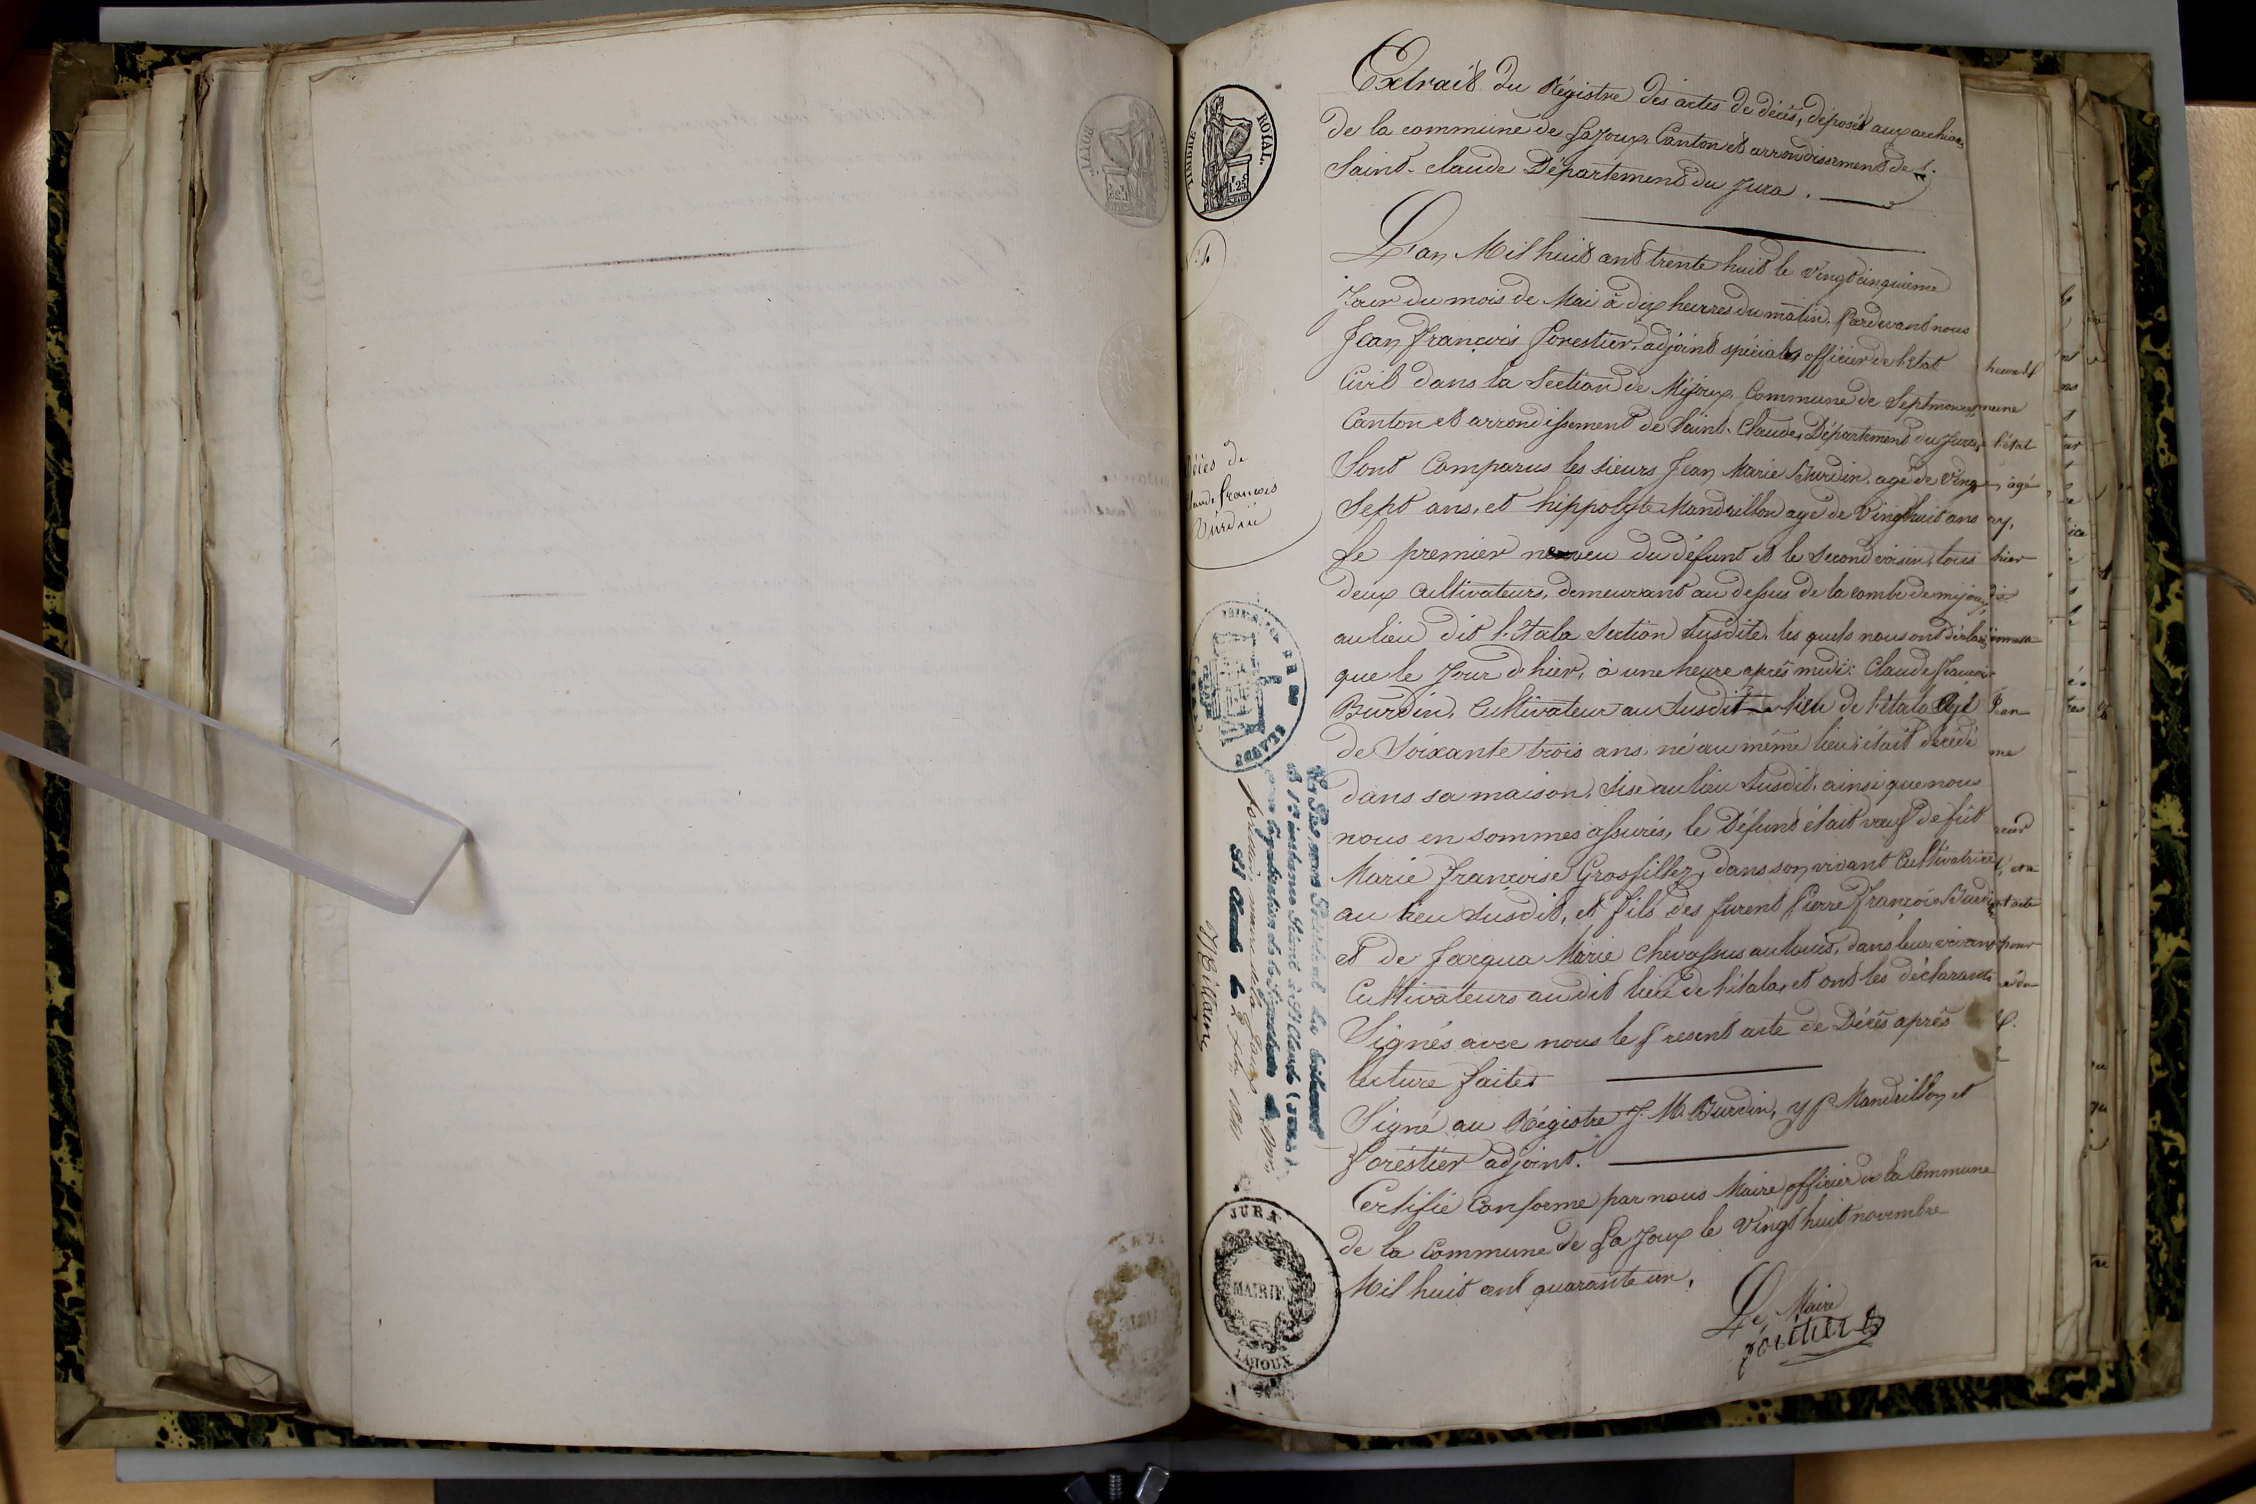 Extrait du Régistre des actes de décès, déposés aux archives
de la commune de Lajoux Canton et arrondissement de
Saint-claude Département du Jura.
L'an Mil huit cent trente huit le vingt cinquième
Jour du mois de Mai à dix heurres du matin, Pardevant nous
Jean François Forestier, adjoint spécial officier de l'Etat
Civil dans la Section de Mijoux, Commune de Septmoncel
Canton et arrondissement de Saint-Claude, Département du Jura,
Sont Comparus les sieurs Jean Marie Burdin agé de Vingt
Sept ans, et hippolyte Mandrillon agé de Vingt huit ans
Le premier neveu du défunt et le second voisin, tous
deux Cultivateurs, demeurant au dessus de la combe de mijoux
au lieu dit l'Etala Section susdite, les quels nous ont déclaré
que le Jour d'hier, à une heure après midi: Claude François
Burdin, Cultivateur au susdit lieu de l'étala agé
de Soixante trois ans, né au même lieu, était décédé
dans sa maison, sise au lieu susdit, ainsi que nous
nous en sommes assurés, le Défunt était veuf de fût
Marie Françoise Grosfillez, dans son vivant Cultivatrice
au lieu susdit, et fils des furent Pierre François Burdin
et de Jacqua Marie Chevassus aulouis, dans leur vivant
Cultivateurs au dit lieu de l'étala, et ont les déclarants
Signés avec nous le Present acte de Décès après
lecture faite.
Signé au Régistre J. M. Burdin, yp. Mandrillon et
Foréstier adjoint.
Certifié Conforme par nous Maire officier de la Commune
de la Commune de La Joux le Vingt huit novembre
Mil huit cent quarante un.
Le Maire
TIMBRE ROYAL.
1.25
Décès de
Claude françois
Burdin
St Claude le
JURA
MAIRIE
LAJOUX